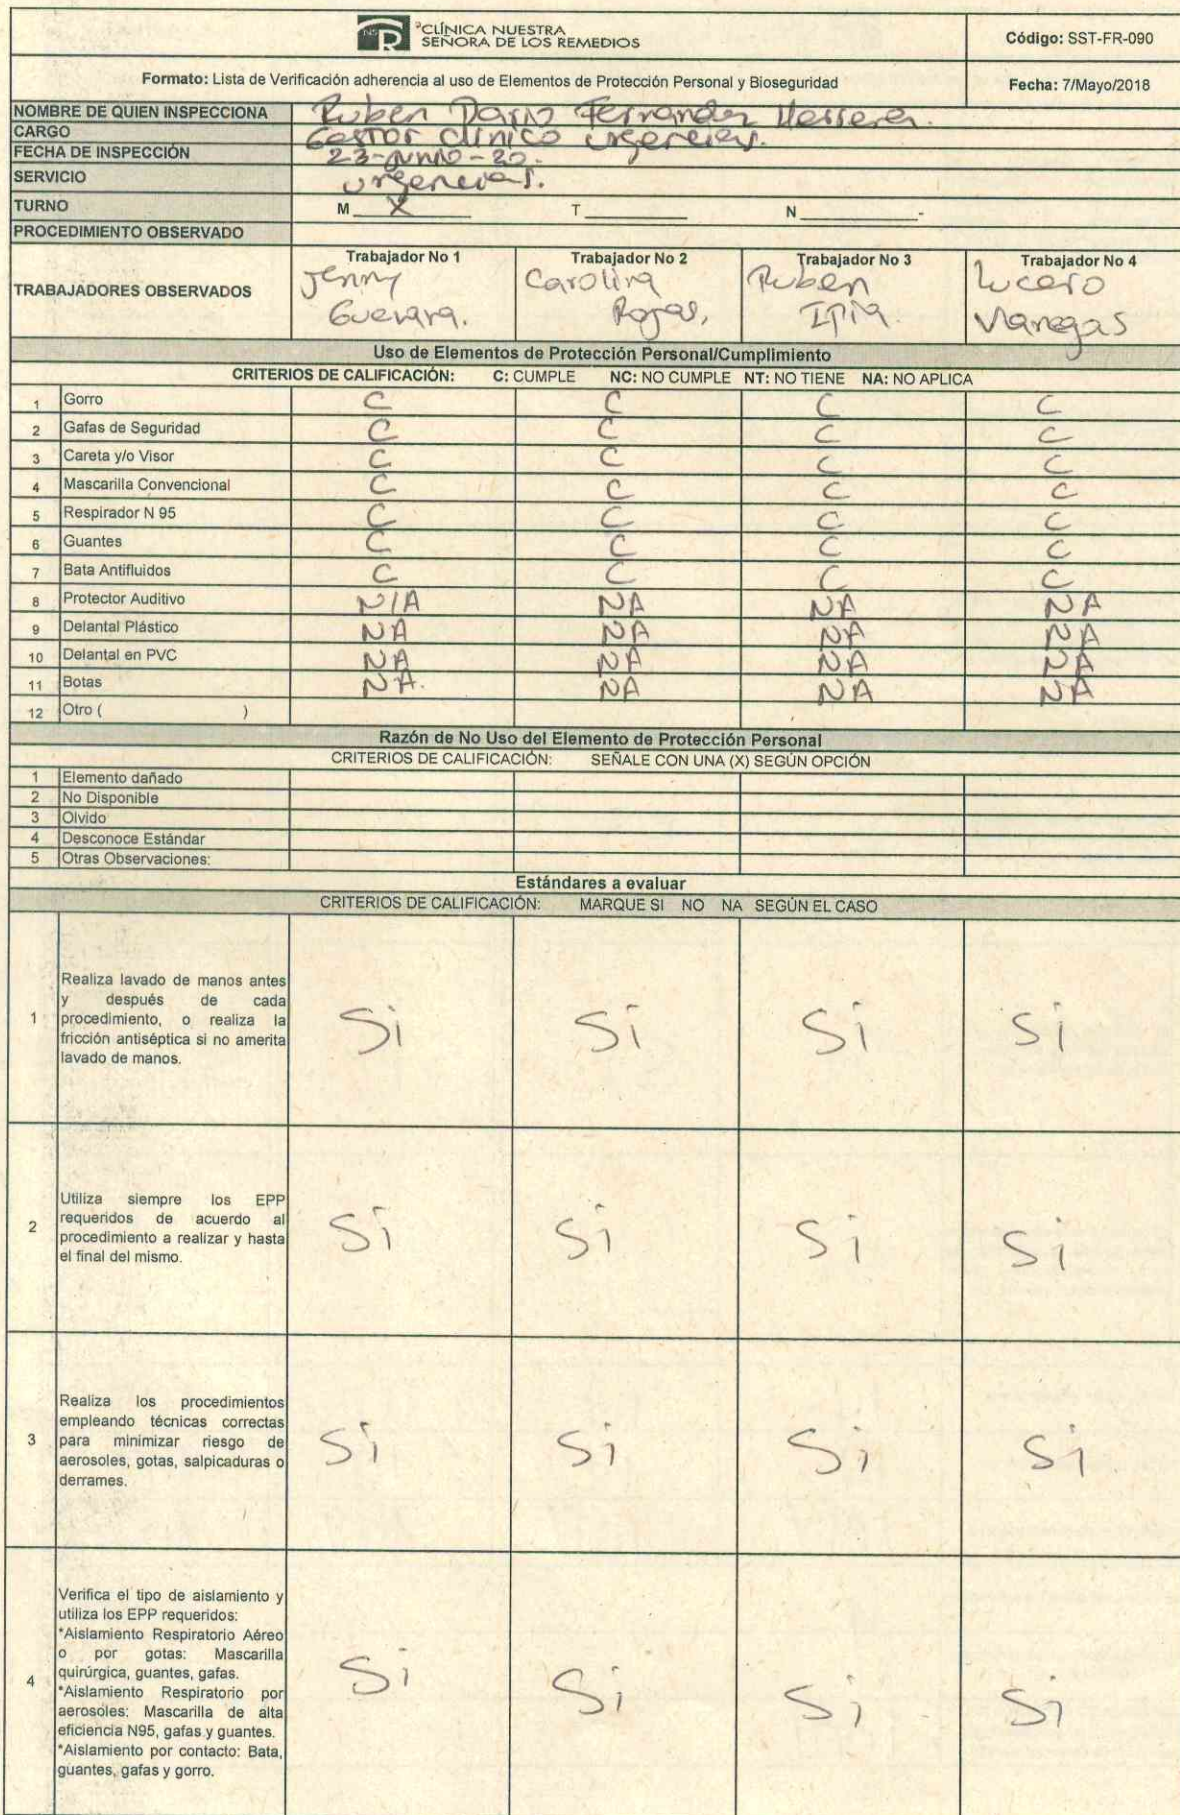 NSR
CLÍNICA NUESTRA
SEÑORA DE LOS REMEDIOS
Código: SST-FR-090
Formato: Lista de Verificación adherencia al uso de Elementos de Protección Personal y Bioseguridad
Fecha: 7/Mayo/2018
NOMBRE DE QUIEN INSPECCIONA Ruben Dario Fernandez Herrera.
CARGO Gestor clinico urgencias.
FECHA DE INSPECCIÓN 23-junio-20.
SERVICIO urgencias.
TURNO M X T N
PROCEDIMIENTO OBSERVADO
TRABAJADORES OBSERVADOS
Trabajador No 1 Trabajador No 2 Trabajador No 3 Trabajador No 4
Jenny Carolina Ruben Lucero
Guevara. Rojas, Ipia. Vanegas
Uso de Elementos de Protección Personal/Cumplimiento
CRITERIOS DE CALIFICACIÓN: C: CUMPLE NC: NO CUMPLE NT: NO TIENE NA: NO APLICA
1 Gorro C C C C
2 Gafas de Seguridad C C C C
3 Careta y/o Visor C C C C
4 Mascarilla Convencional C C C C
5 Respirador N 95 C C C C
6 Guantes C C C C
7 Bata Antifluidos C C C C
8 Protector Auditivo N/A NA NA NA
9 Delantal Plástico NA NA NA NA
10 Delantal en PVC NA NA NA NA
11 Botas NA. NA NA NA
12 Otro ( )
Razón de No Uso del Elemento de Protección Personal
CRITERIOS DE CALIFICACIÓN: SEÑALE CON UNA (X) SEGÚN OPCIÓN
1 Elemento dañado
2 No Disponible
3 Olvido
4 Desconoce Estándar
5 Otras Observaciones:
Estándares a evaluar
CRITERIOS DE CALIFICACIÓN: MARQUE SI NO NA SEGÚN EL CASO
1
Realiza lavado de manos antes
y después de cada
procedimiento, o realiza la
fricción antiséptica si no amerita
lavado de manos.
Si Si Si Si
2
Utiliza siempre los EPP
requeridos de acuerdo al
procedimiento a realizar y hasta
el final del mismo.
Si Si Si Si
3
Realiza los procedimientos
empleando técnicas correctas
para minimizar riesgo de
aerosoles, gotas, salpicaduras o
derrames.
Si Si Si Si
4
Verifica el tipo de aislamiento y
utiliza los EPP requeridos:
*Aislamiento Respiratorio Aéreo
o por gotas: Mascarilla
quirúrgica, guantes, gafas.
*Aislamiento Respiratorio por
aerosoles: Mascarilla de alta
eficiencia N95, gafas y guantes.
*Aislamiento por contacto: Bata,
guantes, gafas y gorro.
Si Si Si Si